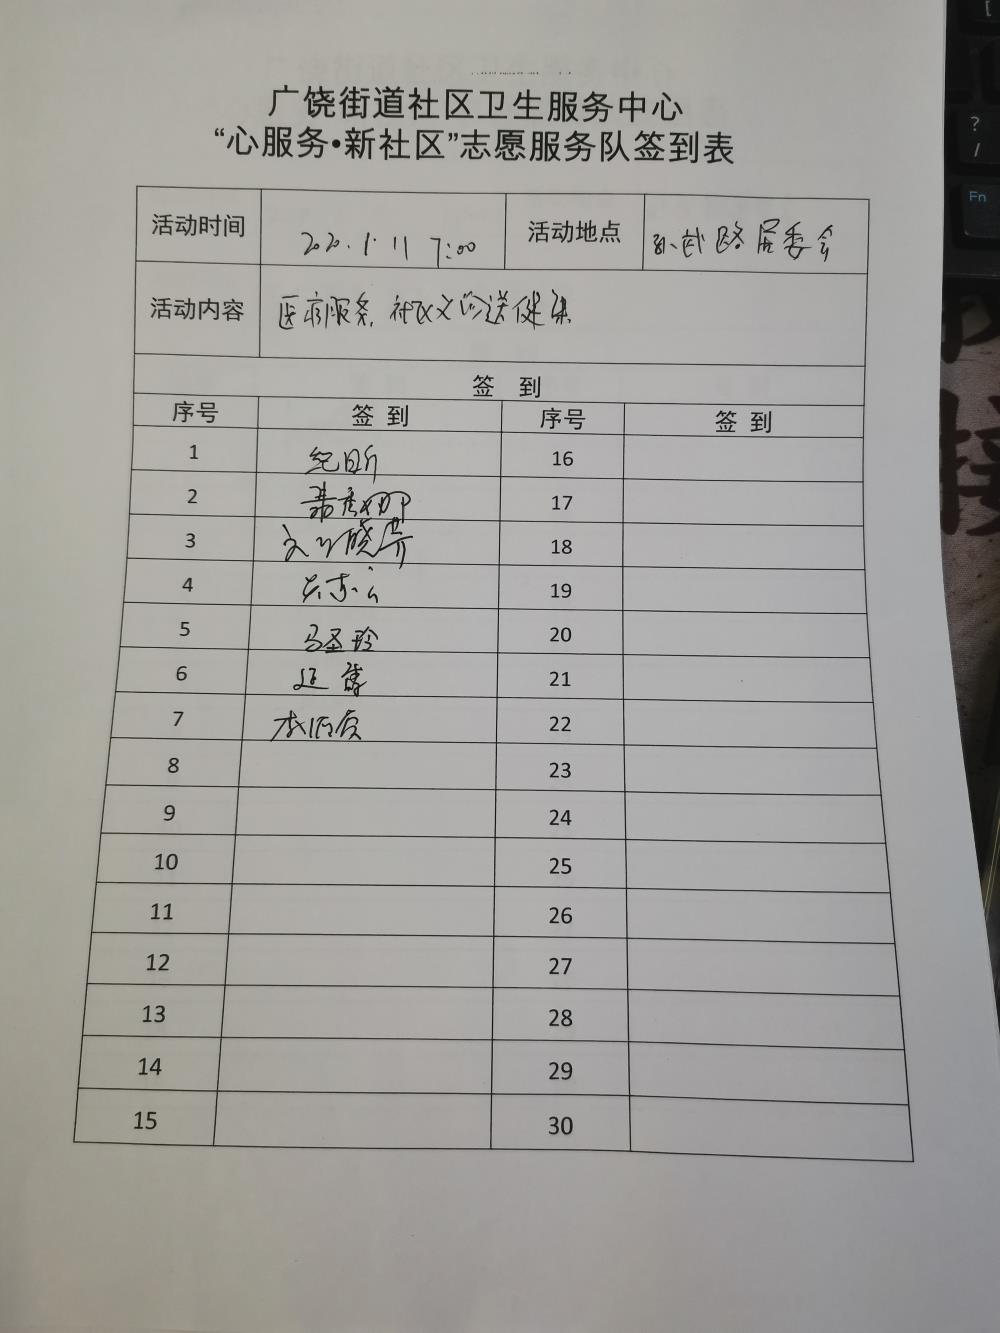 广饶街道社区卫生服务中心
“心服务•新社区”志愿服务队签到表
活动时间 2020.1.11 7:00 活动地点 孙武路居委会
活动内容 医疗服务,社区义诊送健康
签 到
序号 签 到 序号 签 到
1 纪昕 16
2 17
3 刘晓芹 18
4 19
5 马圣玲 20
6 21
7 22
8 23
9 24
10 25
11 26
12 27
13 28
14 29
15 30
?
/
Fn
[
接